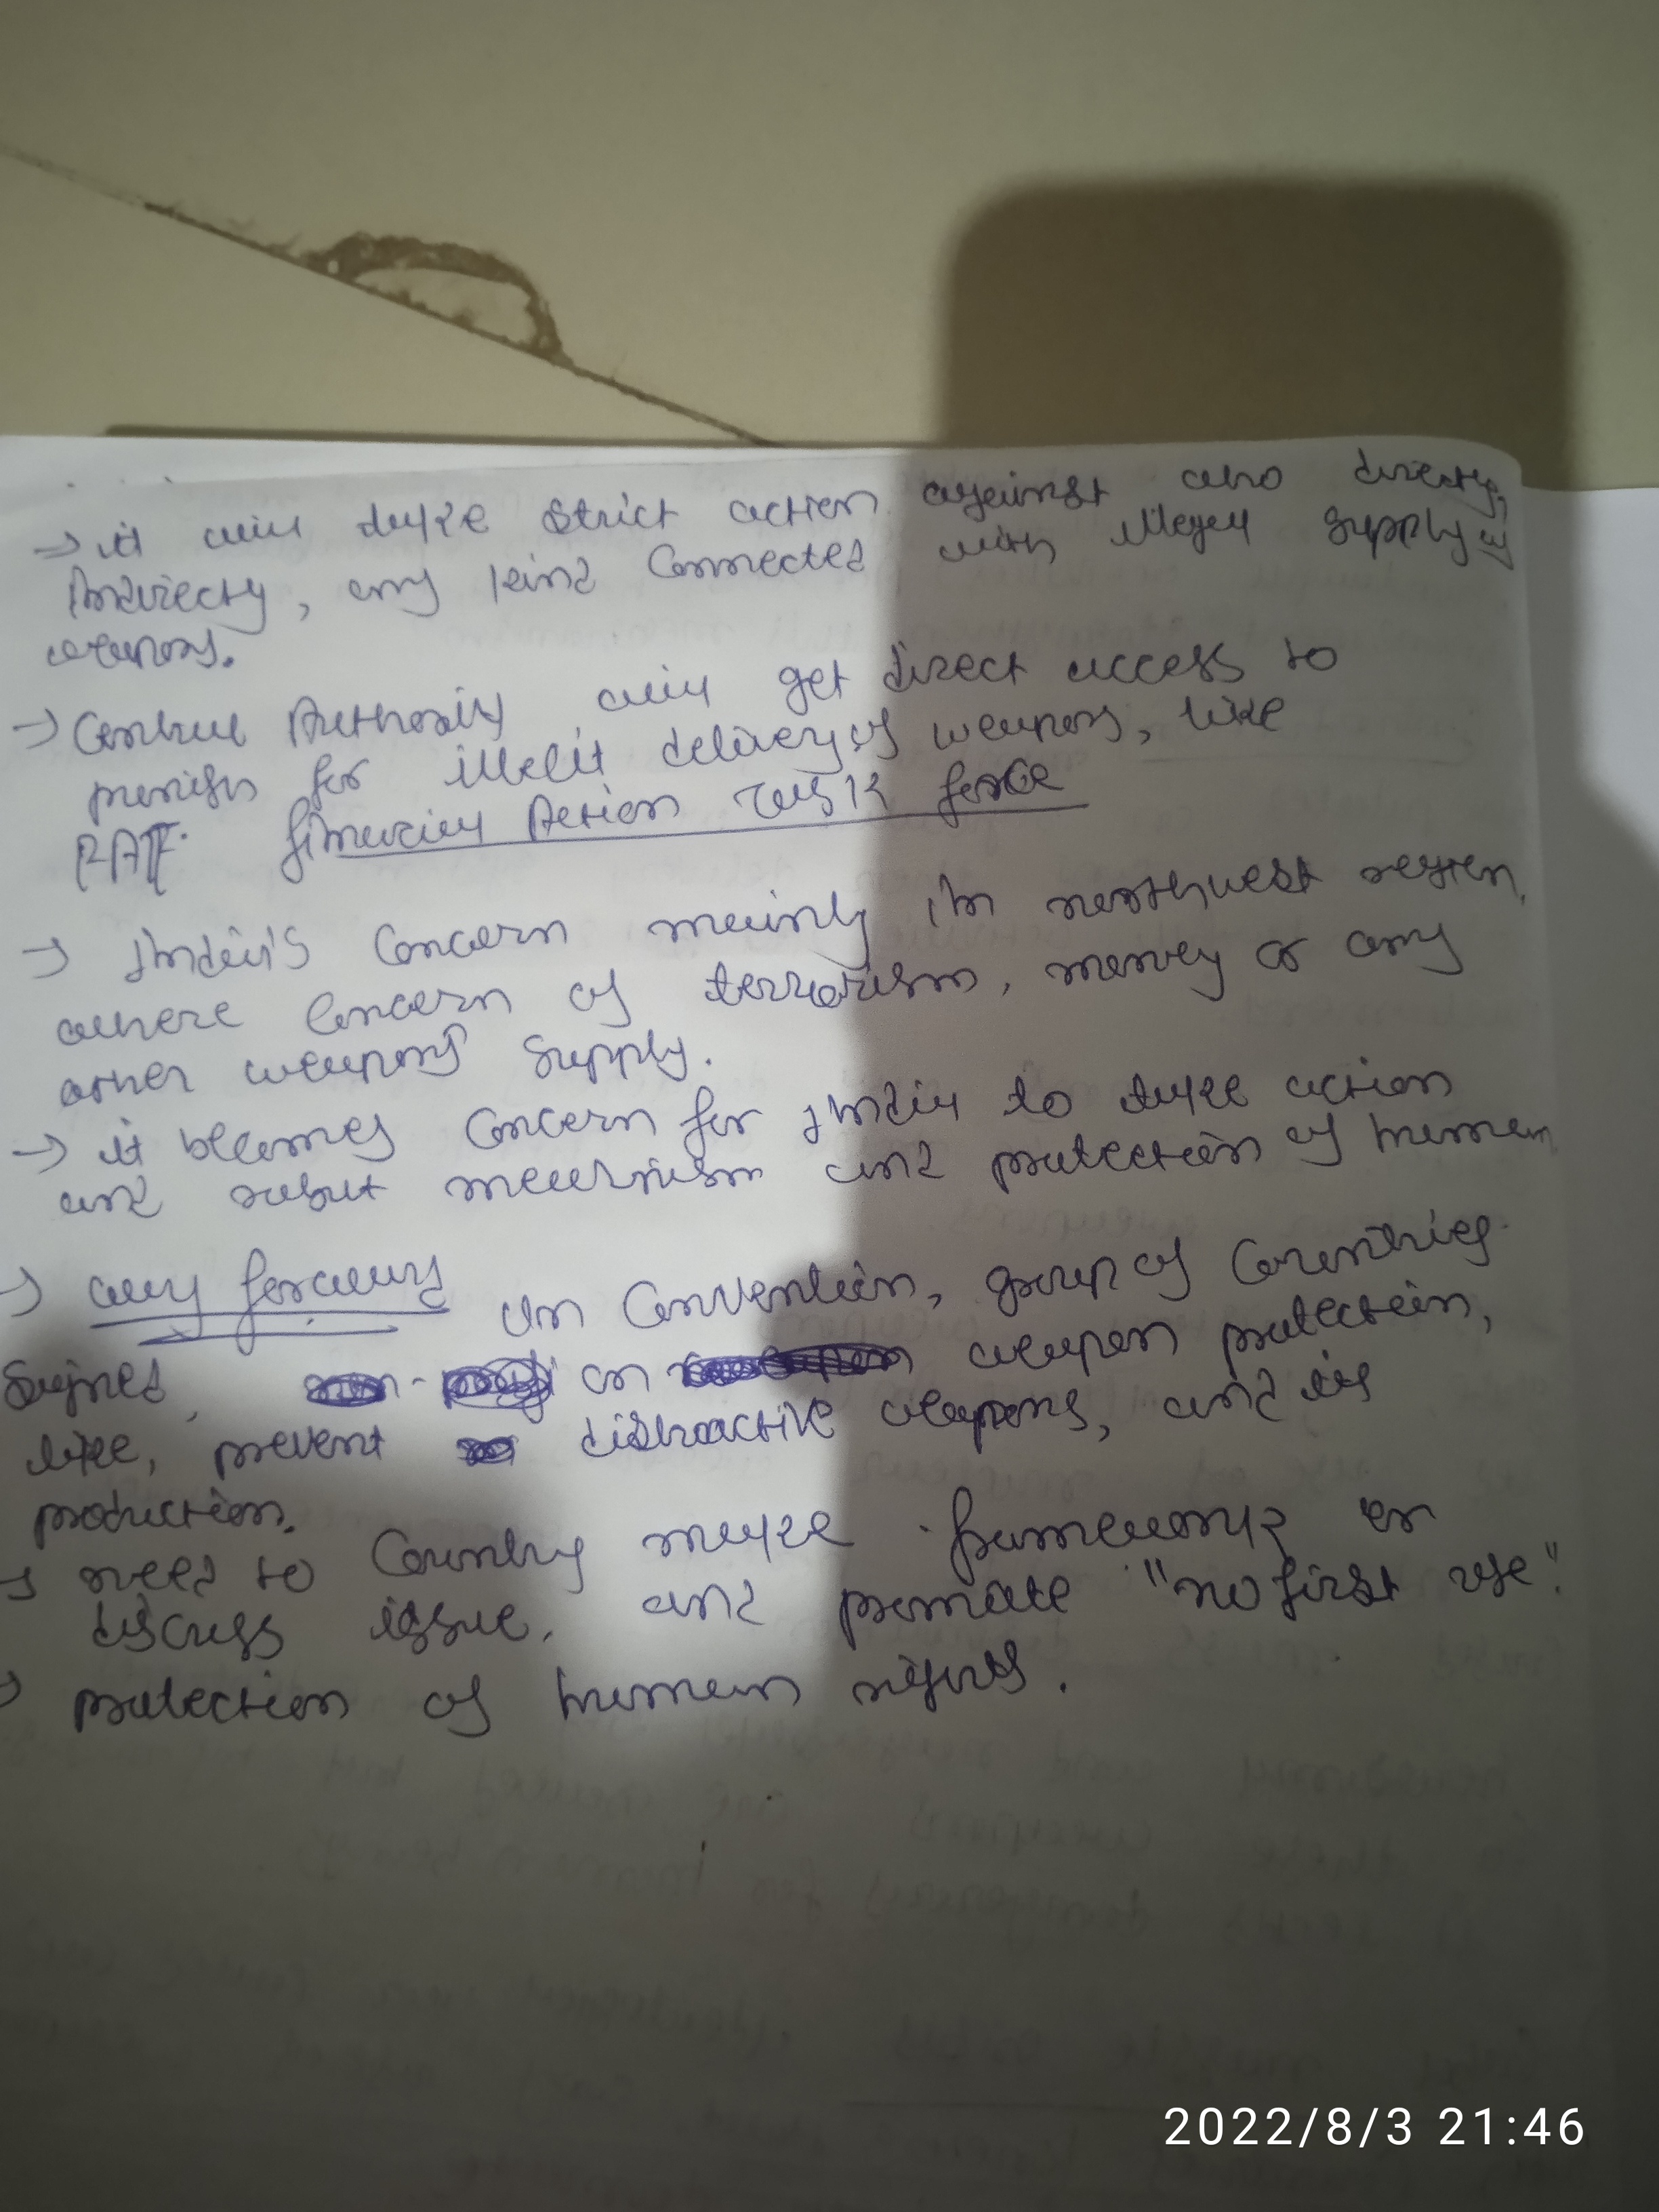 → it will take strict action against who directly,
Indirectly, any kind connected with illegal supply of
weapons.
→ Central Authority will get direct access to
punish for illicit delivery of weapons, like
FATF. financial Action Task force
→ India's concern mainly in northwest region,
where concern of terrorism, money or any
other weapons supply.
→ it becomes concern for India to take action
and robust mechnism and protection of human
→ way forward
UN Convention, group of Countries
Signed, on weapon protection,
like, prevent distractive weapons, and its
production.
→ need to Country make framework or
discuss issue, and promote "no first use".
→ protection of human rights.
2022/8/3 21:46